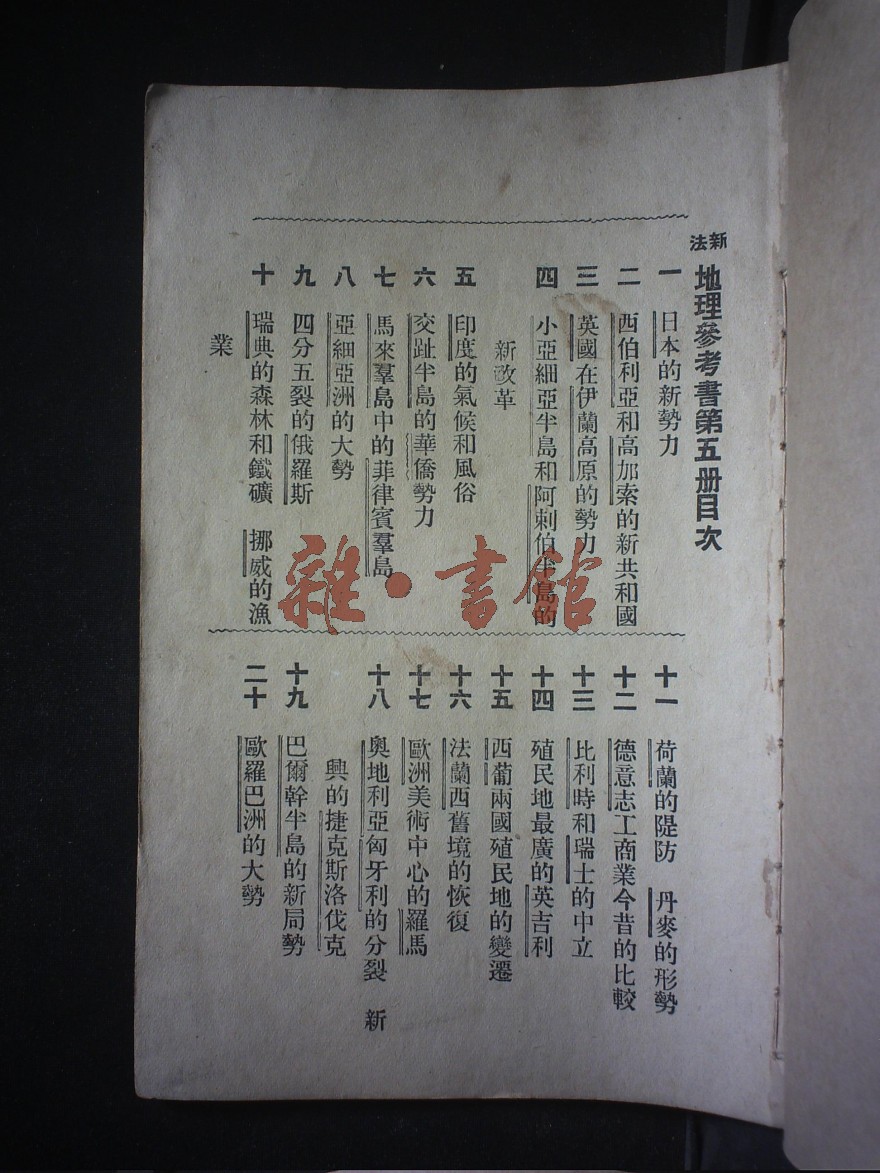 新法地理參考書第五册目次
一 日本的新勢力
二 西伯利亞和高加索的新共和國
三 英國在伊蘭高原的勢力
四 小亞細亞半島和阿剌伯半島的
新改革
五 印度的氣候和風俗
六 交趾半島的華僑勢力
七 馬來羣島中的菲律賓羣島
八 亞細亞洲的大勢
九 四分五裂的俄羅斯
十 瑞典的森林和鐵礦 挪威的漁
業
十一 荷蘭的隄防 丹麥的形勢
十二 德意志工商業今昔的比較
十三 比利時和瑞士的中立
十四 殖民地最廣的英吉利
十五 西葡兩國殖民地的變遷
十六 法蘭西舊境的恢復
十七 歐洲美術中心的羅馬
十八 奧地利亞匈牙利的分裂 新
興的捷克斯洛伐克
十九 巴爾幹半島的新局勢
二十 歐羅巴洲的大勢
雜·書館